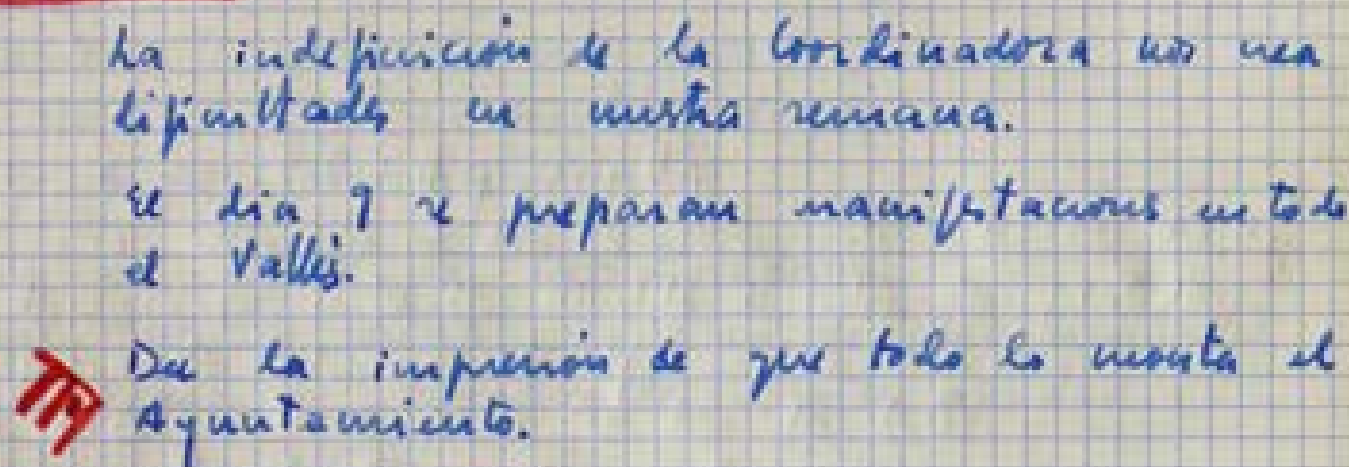 La indefinición de la Coordinadora nos crea
dificultades en nuestra semana.
El dia 9 se preparan manifestaciones en todo
el Vallés.
TM
Da la impresión de que todo lo monta el
Ayuntamiento.